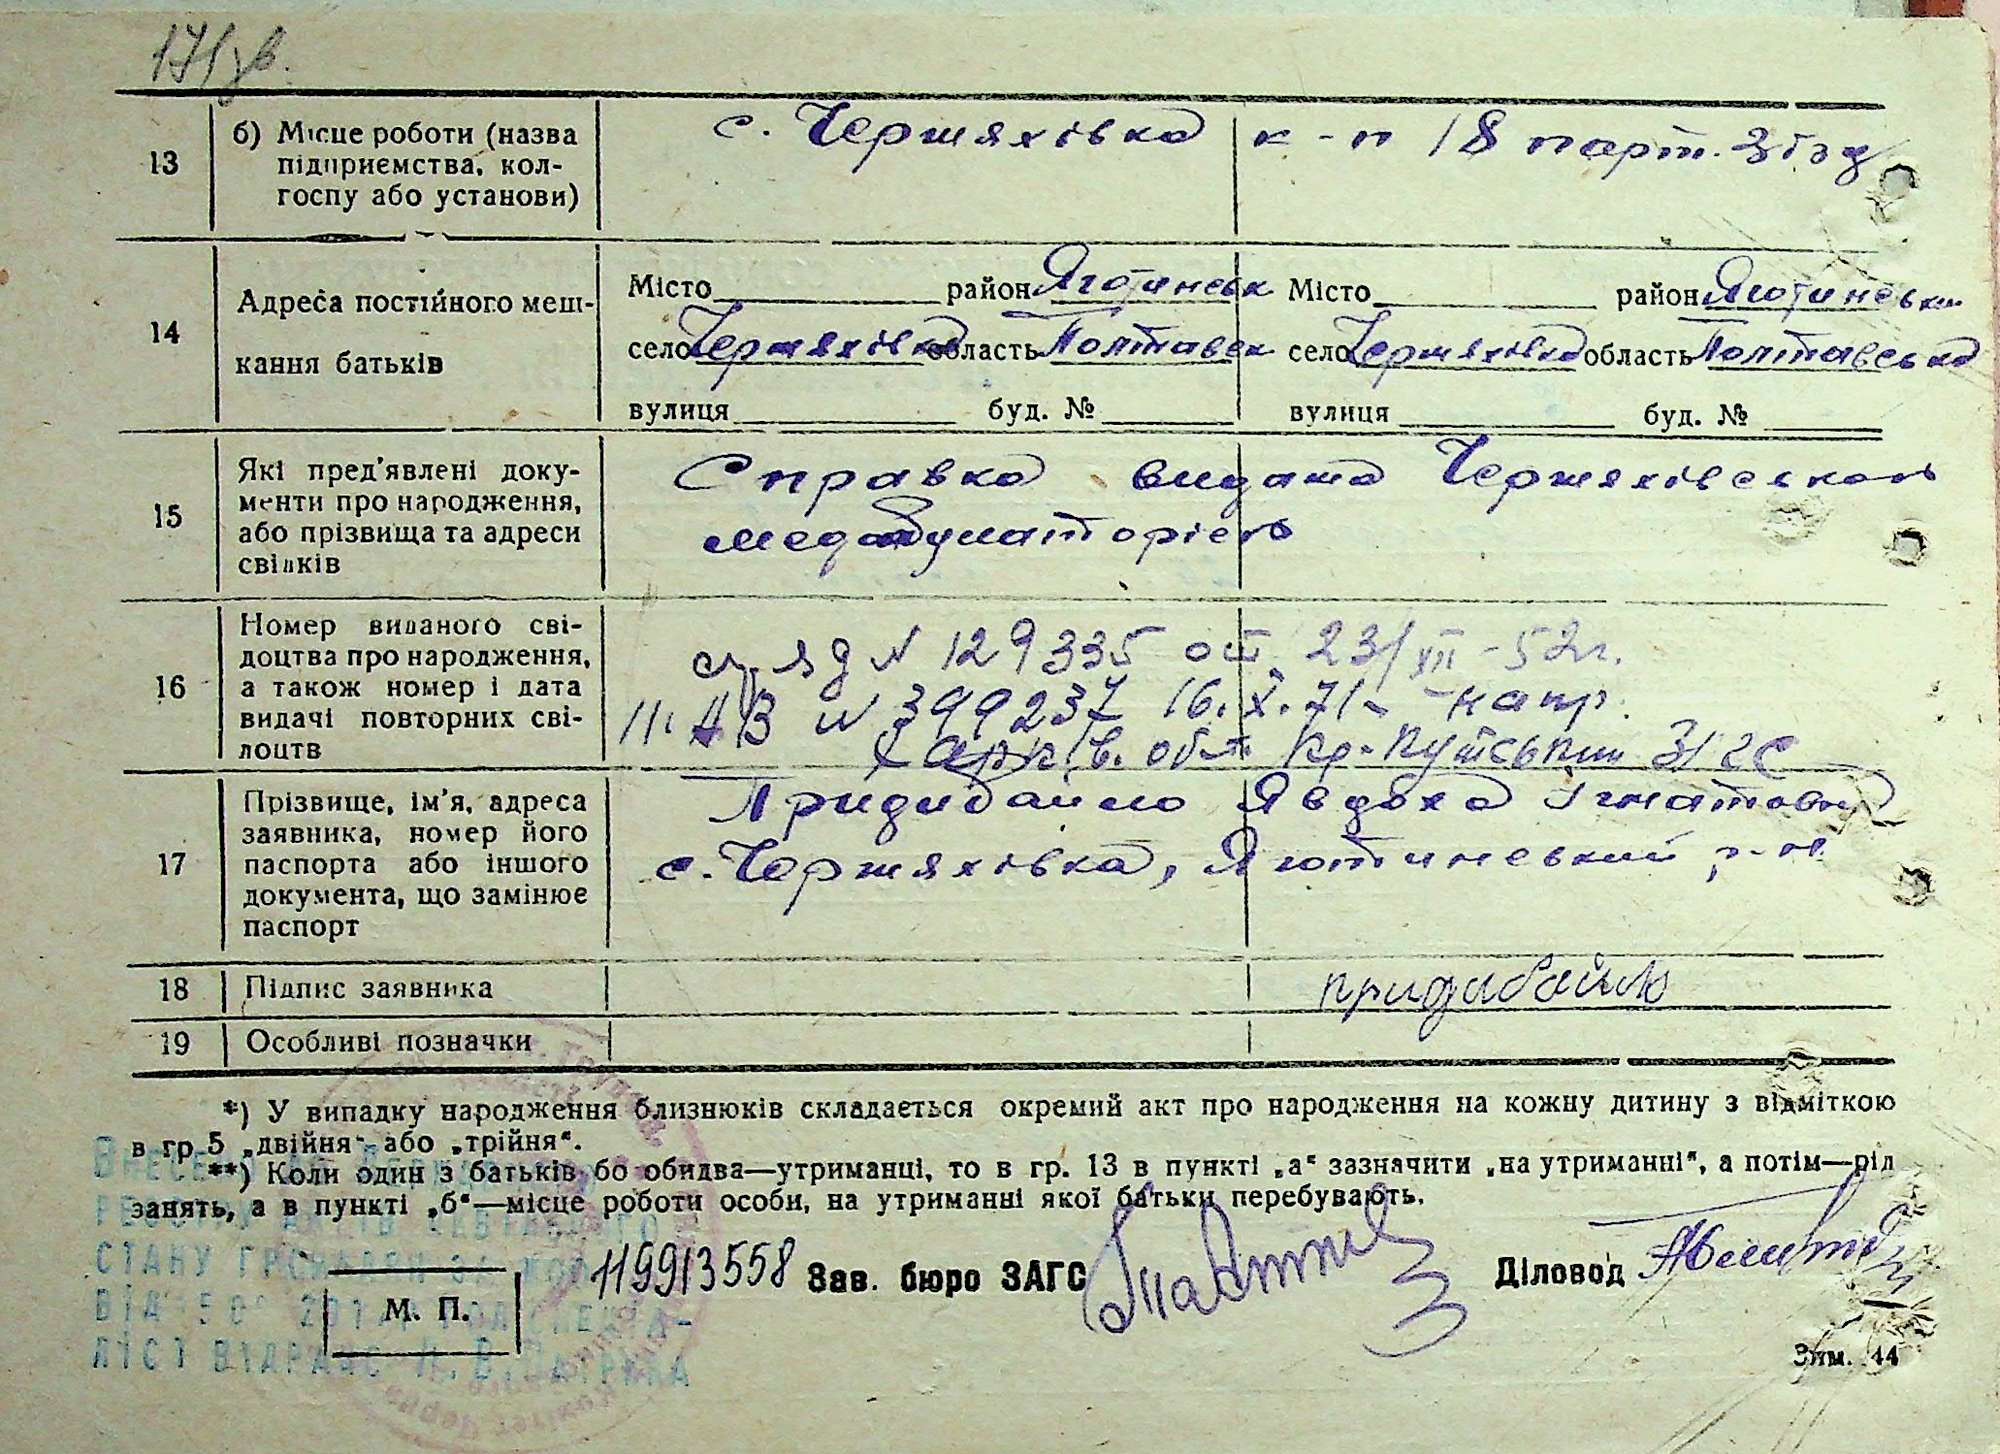 171зв.
13 б) Місце роботи (назва підприємства, колгоспу або установи) с. Черняхівка к-п 18 парт. зїзд
14 Адреса постійного мешкання батьків
Місто район Яготинськ Місто район Яготинськи
село Черняхівка область Полтавськ село Черняхівка область Полтавська
вулиця буд. № вулиця буд. №
15 Які пред'явлені документи про народження, або прізвища та адреси свідків
Справка видата Черняхівскою
медамбулаторією
16 Номер виданого свідоцтва про народження, а також номер і дата видачі повторних свідоцтв
N 129335 от 23/VII-52г.
АВ N 399237 16.X.71 - напр.
Харків. обл. Кр-Кутський ЗАГС
17 Прізвище, ім'я, адреса заявника, номер його паспорта або іншого документа, що замінює паспорт
Придибайло Явдоха Ігнатовна
с. Черняхівка, Яготинський р-н
18 Підпис заявника придибайло
19 Особливі позначки
*) У випадку народження близнюків складається окремий акт про народження на кожну дитину з відміткою
в гр. 5 „двійня" або „трійня".
**) Коли один з батьків бо обидва—утриманці, то в гр. 13 в пункті „а" зазначити „на утриманні", а потім—рід
занять, а в пункті „б"—місце роботи особи, на утриманні якої батьки перебувають.
СТАНУ ГРОМАДЯН ЗА
М. П. 119913558 Зав. бюро ЗАГС Діловод
Зим. 44